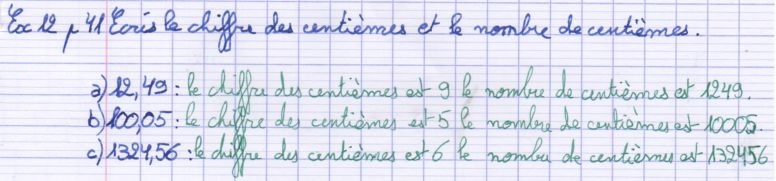 Ex 12 p 41 Ecris le chiffre des centièmes et le nombre de centièmes.
a) 12,49 : le chiffre des centièmes est 9 le nombre de centièmes est 1249.
b) 100,05 : le chiffre des centièmes est 5 le nombre de centièmes est 10005.
c) 1324,56 : le chiffre des centièmes est 6 le nombre de centièmes est 132456